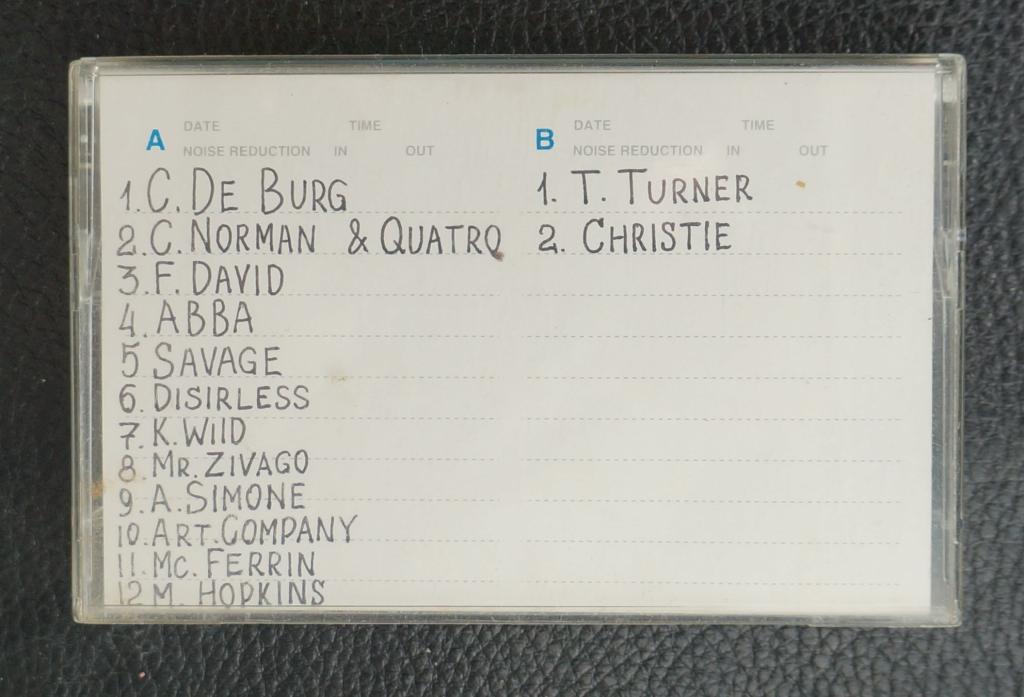 A DATE TIME
NOISE REDUCTION IN OUT
1. C. DE BURG
2. C. NORMAN & QUATRO
3. F. DAVID
4. ABBA
5 SAVAGE
6. DISIRLESS
7. K. WIID
8. MR. ZIVAGO
9. A. SIMONE
10. ART. COMPANY
11. MC. FERRIN
12 M. HOPKINS
B DATE TIME
NOISE REDUCTION IN OUT
1. T. TURNER
2. CHRISTIE